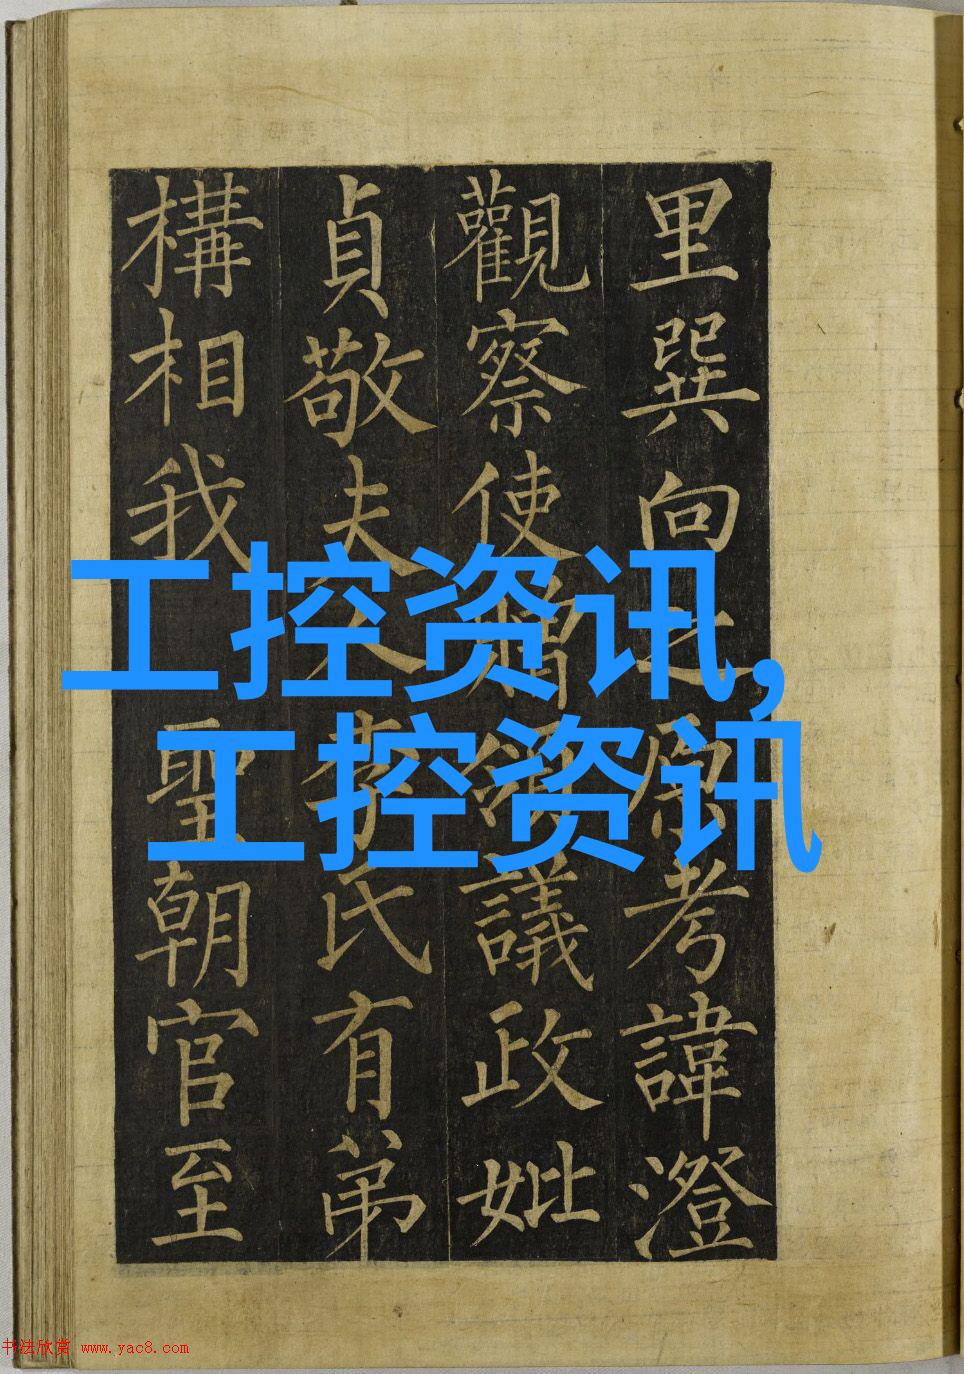 里巽向之原考諱澄
觀察使贈領議政妣
貞敬夫人李氏有弟
構相我聖朝官至
工控资讯,
工控资讯
书法欣赏 www.yac8.com